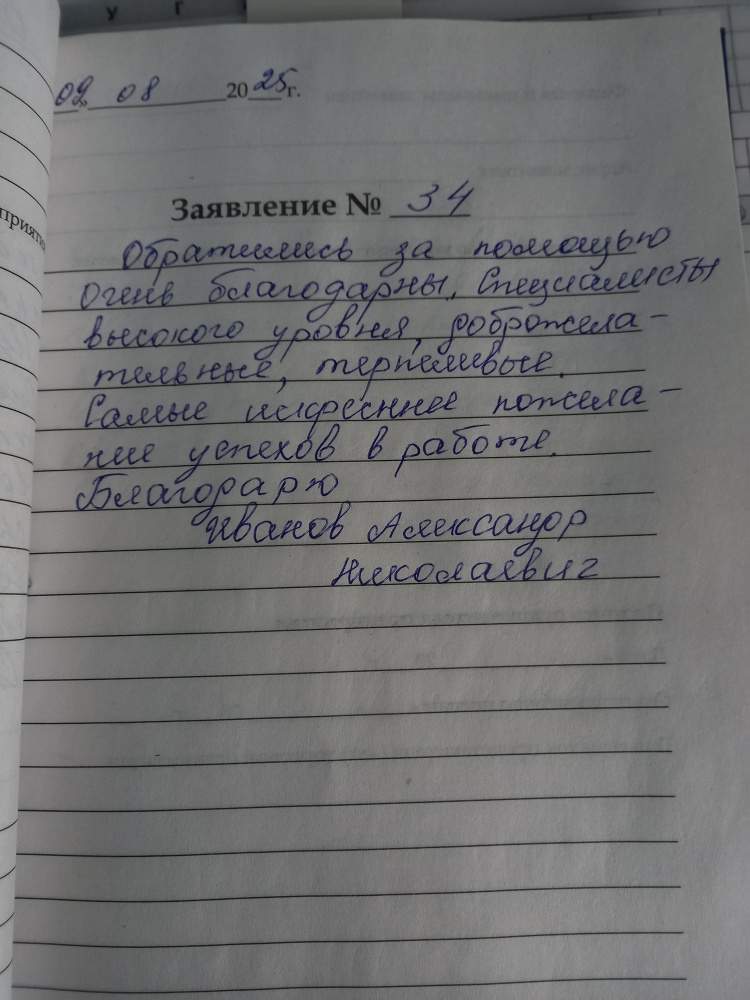 У Г
09 08 2025 г.
приятия
Заявление № 34
Обратились за помощью
Очень благодарны. Специалисты
высокого уровня, доброжела-
тельные, терпеливые.
Самые искреннее пожела-
ние успехов в работе.
Благодарю
Иванов Александр
Николаевич